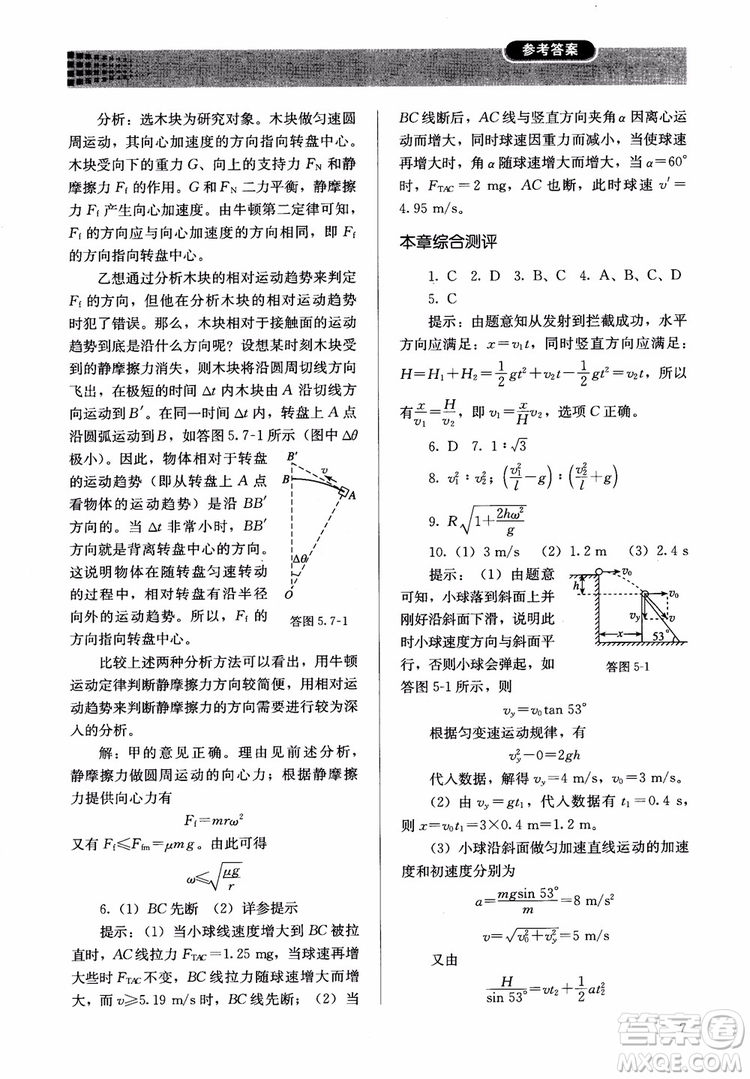 参考答案
分析：选木块为研究对象。木块做匀速圆
周运动，其向心加速度的方向指向转盘中心。
木块受向下的重力 G、向上的支持力 F_N 和静
摩擦力 F_f 的作用。G 和 F_N 二力平衡，静摩擦
力 F_f 产生向心加速度。由牛顿第二定律可知，
F_f 的方向应与向心加速度的方向相同，即 F_f
的方向指向转盘中心。
乙想通过分析木块的相对运动趋势来判定
F_f 的方向，但他在分析木块的相对运动趋势
时犯了错误。那么，木块对于接触面的运动
趋势到底是沿什么方向呢？设想某时刻木块受
到的静摩擦力消失，则木块将沿圆周切线方向
飞出，在极短的时间 Δt 内木块由 A 沿切线方
向运动到 B′。在同一时间内，转盘上的 A 点
沿圆弧运动到 B，如答图 5.7-1 所示（图中 Δθ
极小）。因此，物体相对转
盘的运动趋势（即从转盘上
看物体的运动趋势）是沿 BB′
方向的。当 Δt 非常小时，BB′
方向就是背离转盘中心的方向。
这说明物体在随转盘匀速转动
的过程中，相对转盘有沿半径
向外的运动趋势。所以，F_f 的
方向指向转盘中心。
B′
B
v
A
Δθ
O
答图 5.7-1
比较上述两种分析方法可以看出，用牛顿
运动定律判断静摩擦力方向较简便，用相对运
动趋势来判断静摩擦力的方向需进行较为深
入的分析。
解：甲的意见正确。理由见前述分析，
静摩擦力做圆周运动的向心力；根据静摩擦
力提供向心力有
F_f=mrω²
又有 F_f≤F_fm=μmg。由此可得
ω≤√(μg/r)
6. (1) BC 先断 (2) 详参提示
提示：(1) 当小球线速度增大到 BC 被拉
直时，AC 线拉力 F_TAC=1.25 mg，当球速再增
大些时 F_TAC 不变，BC 线拉力随球速增大而增
大，而 v≥5.19 m/s 时，BC 线先断；(2) 当
BC 线断后，AC 线与竖直方向夹角 α 因离心运
动而增大，同时球速因重力而减小，当使球速
再增大时，角 α 随球速增大而增大，当 α=60°
时，F_TAC=2 mg，AC 也断，此时球速 v′=
4.95 m/s。
本章综合测评
1. C 2. D 3. B、C 4. A、B、C、D
5. C
提示：由题意知从发射到拦截成功，水平
方向应满足：x=v₁t，同时竖直方向应满足：
H=H₁+H₂=1/2gt²+v₂t−1/2gt²=v₂t，所以
有x/v₁=H/v₂，即 v₁=x/H v₂，选项 C 正确。
6. D 7. 1∶√3
8. v₁²∶v₂²；(v₁²/l−g)∶(v₂²/l+g)
9. R√(1+2hω²/g)
10. (1) 3 m/s (2) 1.2 m (3) 2.4 s
提示：(1) 由题意
可知，小球落到斜面上并
刚好沿斜面下滑，说明此
时小球速度方向与斜面平
行，否则小球会弹起，如
答图 5-1 所示，则
v₀
h
v₀
v_y
v
x
53°
答图 5-1
v_y=v₀tan 53°
根据匀变速运动规律，有
v_y²−0=2gh
代入数据，解得 v_y=4 m/s，v₀=3 m/s。
(2) 由 v_y=gt₁，代入数据有 t₁=0.4 s，
则 x=v₀t₁=3×0.4 m=1.2 m。
(3) 小球沿斜面做匀加速直线运动的加速
度和初速度分别为
a=mgsin 53°/m=8 m/s²
v=√(v₀²+v_y²)=5 m/s
又由
H/sin 53°=vt₂+1/2at₂²
7
答案圈
MXQE.COM